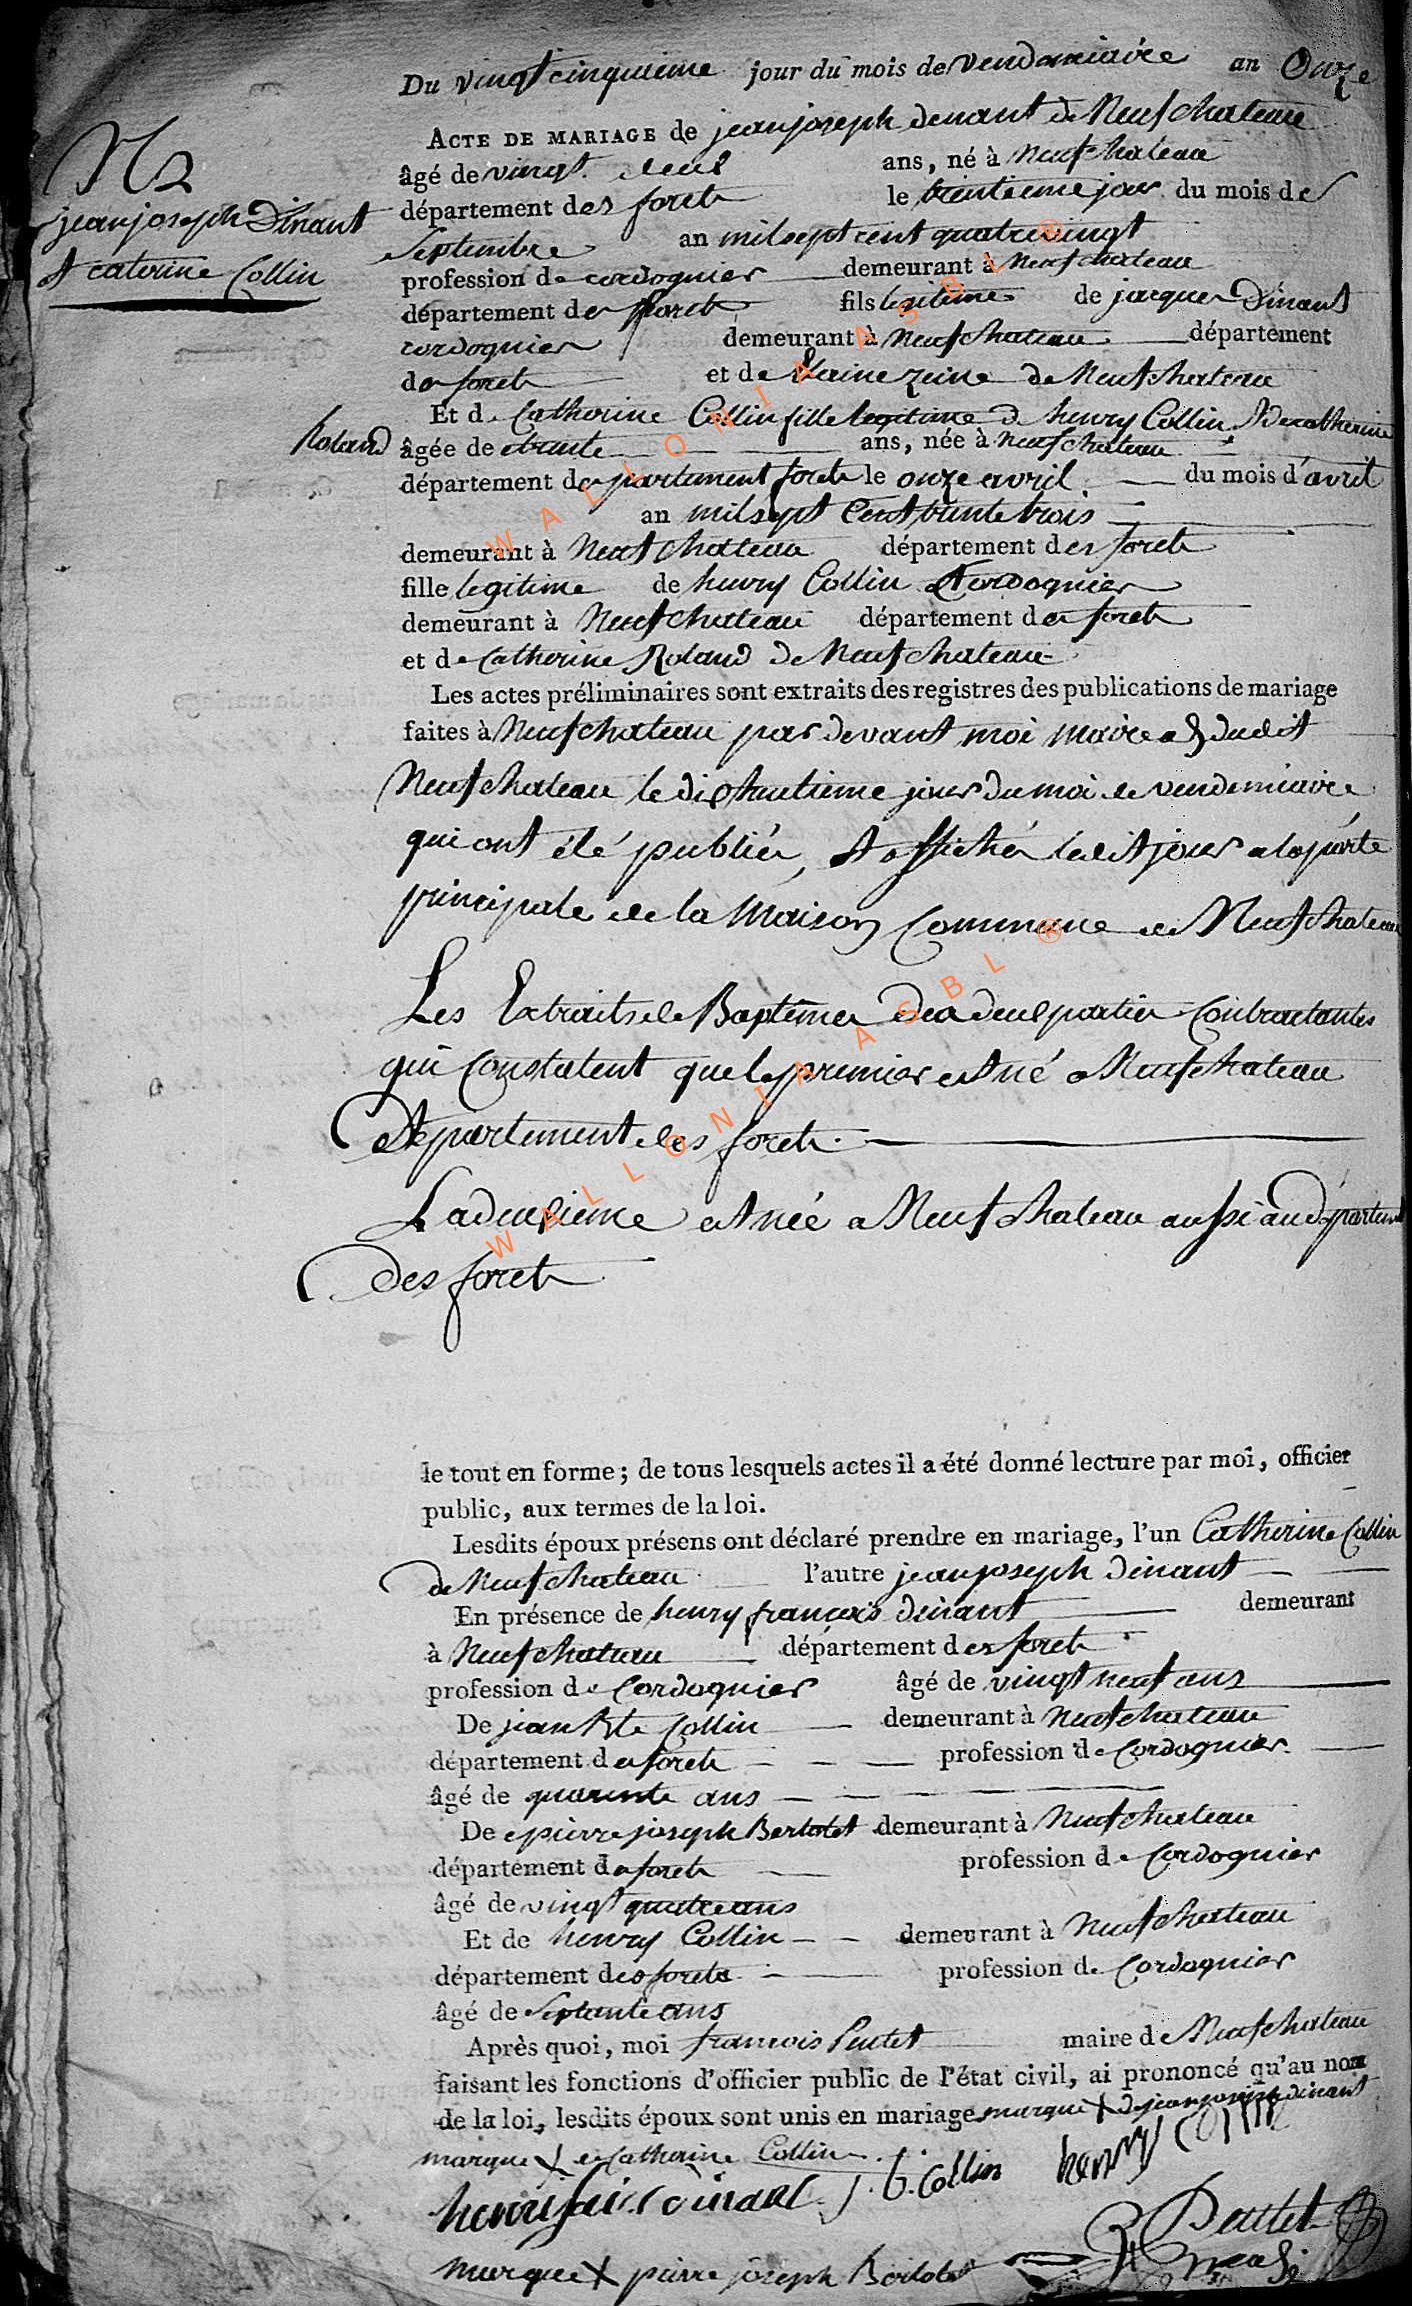 Du vingt cinquieme jour du mois de vendemiaire an Onze
N 2
jean joseph Dinant
et caterine Collin
ACTE DE MARIAGE de jean joseph denant de Neufchateau
âgé de vingt deux ans, né à Neufchateau
département des foret le trentieme jour du mois de
Septembre an mil sept cent quatre vingt
profession de cordognier demeurant à Neufchateau
département des foret fils legitime de jacques Dinant
cordognier demeurant à Neufchateau département
des foret et de de Neufchateau
Et de Catherine Collin fille legitime de henry Collin & de catherine
Roland
âgée de trente ans, née à Neufchateau
département departement foret le onze avril du mois d'avril
an mil sept Cent trente trois
demeurant à Neufchateau département des foret
fille legitime de henry Collin Cordognier
demeurant à Neufchateau département des foret
et de Catherine Roland de Neufchateau
Les actes préliminaires sont extraits des registres des publications de mariage
faites à Neufchateau par devant moi maire dudit
Neufchateau le dixhuitieme jour du moi de vendemiaire
qui ont été publiés, et affichés ledit jour a la porte
principale de la Maison Commune de Neufchateau
Les Extraits de Baptemes des deux parties Contractantes
qui Constatent que le premier est né a Neufchateau
departement des foret
La deuxieme est née a Neufchateau aussi au departement
des foret
le tout en forme ; de tous lesquels actes il a été donné lecture par moi, officier
public, aux termes de la loi.
Lesdits époux présens ont déclaré prendre en mariage, l'un Catherine Collin
de Neufchateau l'autre jean joseph dinant
En présence de henry françois dinant demeurant
à Neufchateau département des foret
profession de Cordognier âgé de vingt neuf ans
De jean Bte Collin demeurant à Neufchateau
département des foret profession de Cordognier
âgé de quarente ans
De pierre joseph Bertolet demeurant à Neufchateau
département des foret profession de Cordognier
âgé de vingt quatre ans
Et de henry Collin demeurant à Neufchateau
département des forets profession de Cordognier
âgé de Septante ans
Après quoi, moi francois Peutet maire de Neufchateau
faisant les fonctions d'officier public de l'état civil, ai prononcé qu'au nom
de la loi, lesdits époux sont unis en mariage marque X de jean joseph dinant
marque X de Catherine Collin
J. b. Collin henry Collin
marque X pierre joseph Bertolet
WALLONIA ASBL ®
WALLONIA ASBL ®